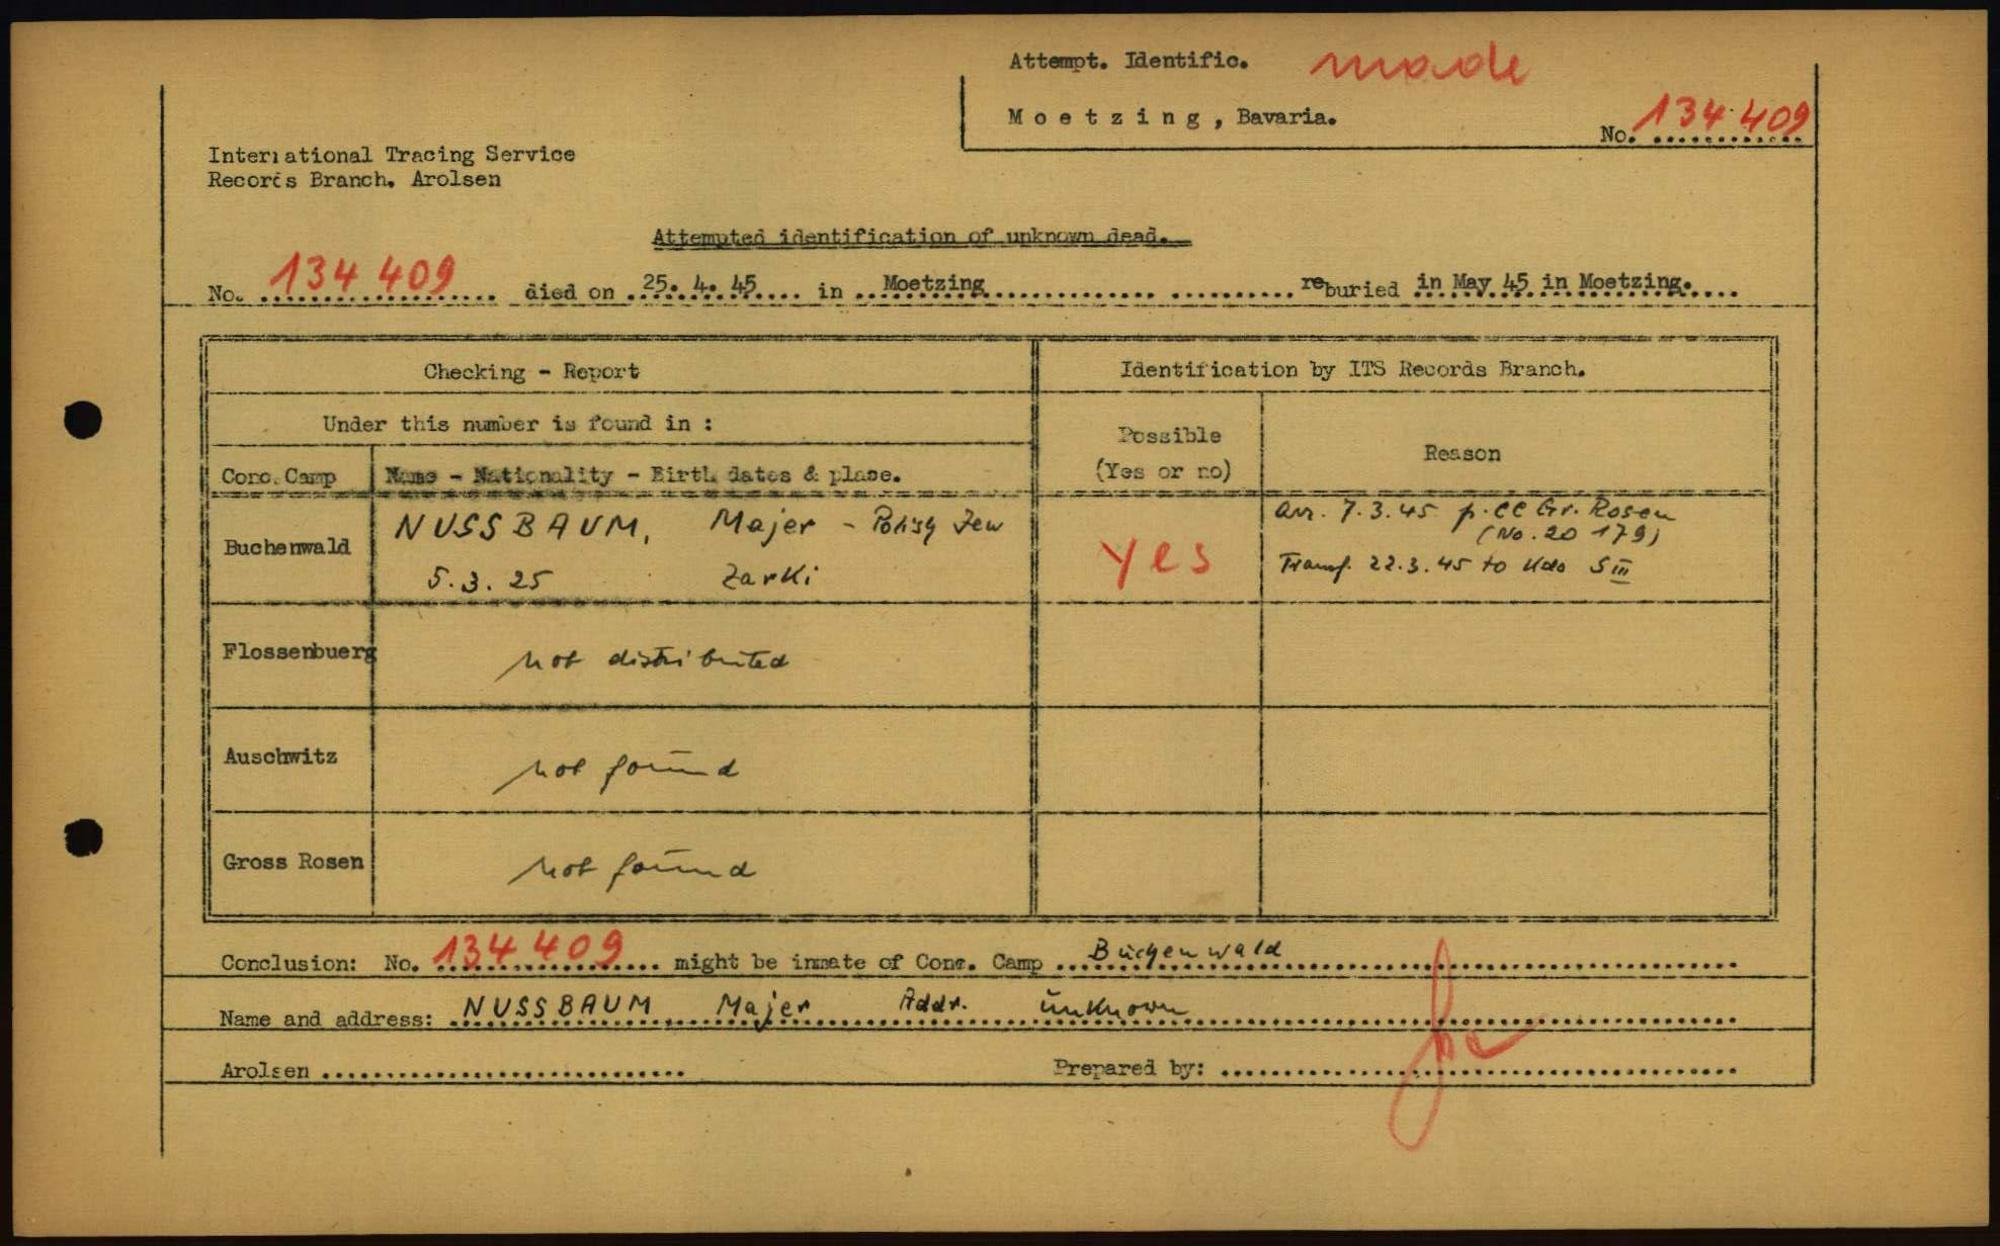 Attempt. Identific. made
Moetzing, Bavaria.
No. 134 409
International Tracing Service
Records Branch. Arolsen
Attempted identification of unknown dead.
No. 134 409 died on 25. 4. 45 in Moetzing reburied in May 45 in Moetzing.
Checking - Report
Identification by ITS Records Branch.
Under this number is found in :
Possible
(Yes or no)
Reason
Conc. Camp Name - Nationality - Birth dates & place.
Buchenwald
NUSSBAUM, Majer - Polish Jew
5.3.25 Zarki
Yes
arr. 7.3.45 p. CC Gr. Rosen
(No. 20 179)
Transf. 22.3.45 to Kdo S III
Flossenbuerg not distributed
Auschwitz not found
Gross Rosen not found
Conclusion: No. 134 409 might be inmate of Conc. Camp Buchenwald
Name and address: NUSSBAUM Majer Addr. unknown
Arolsen
Prepared by: